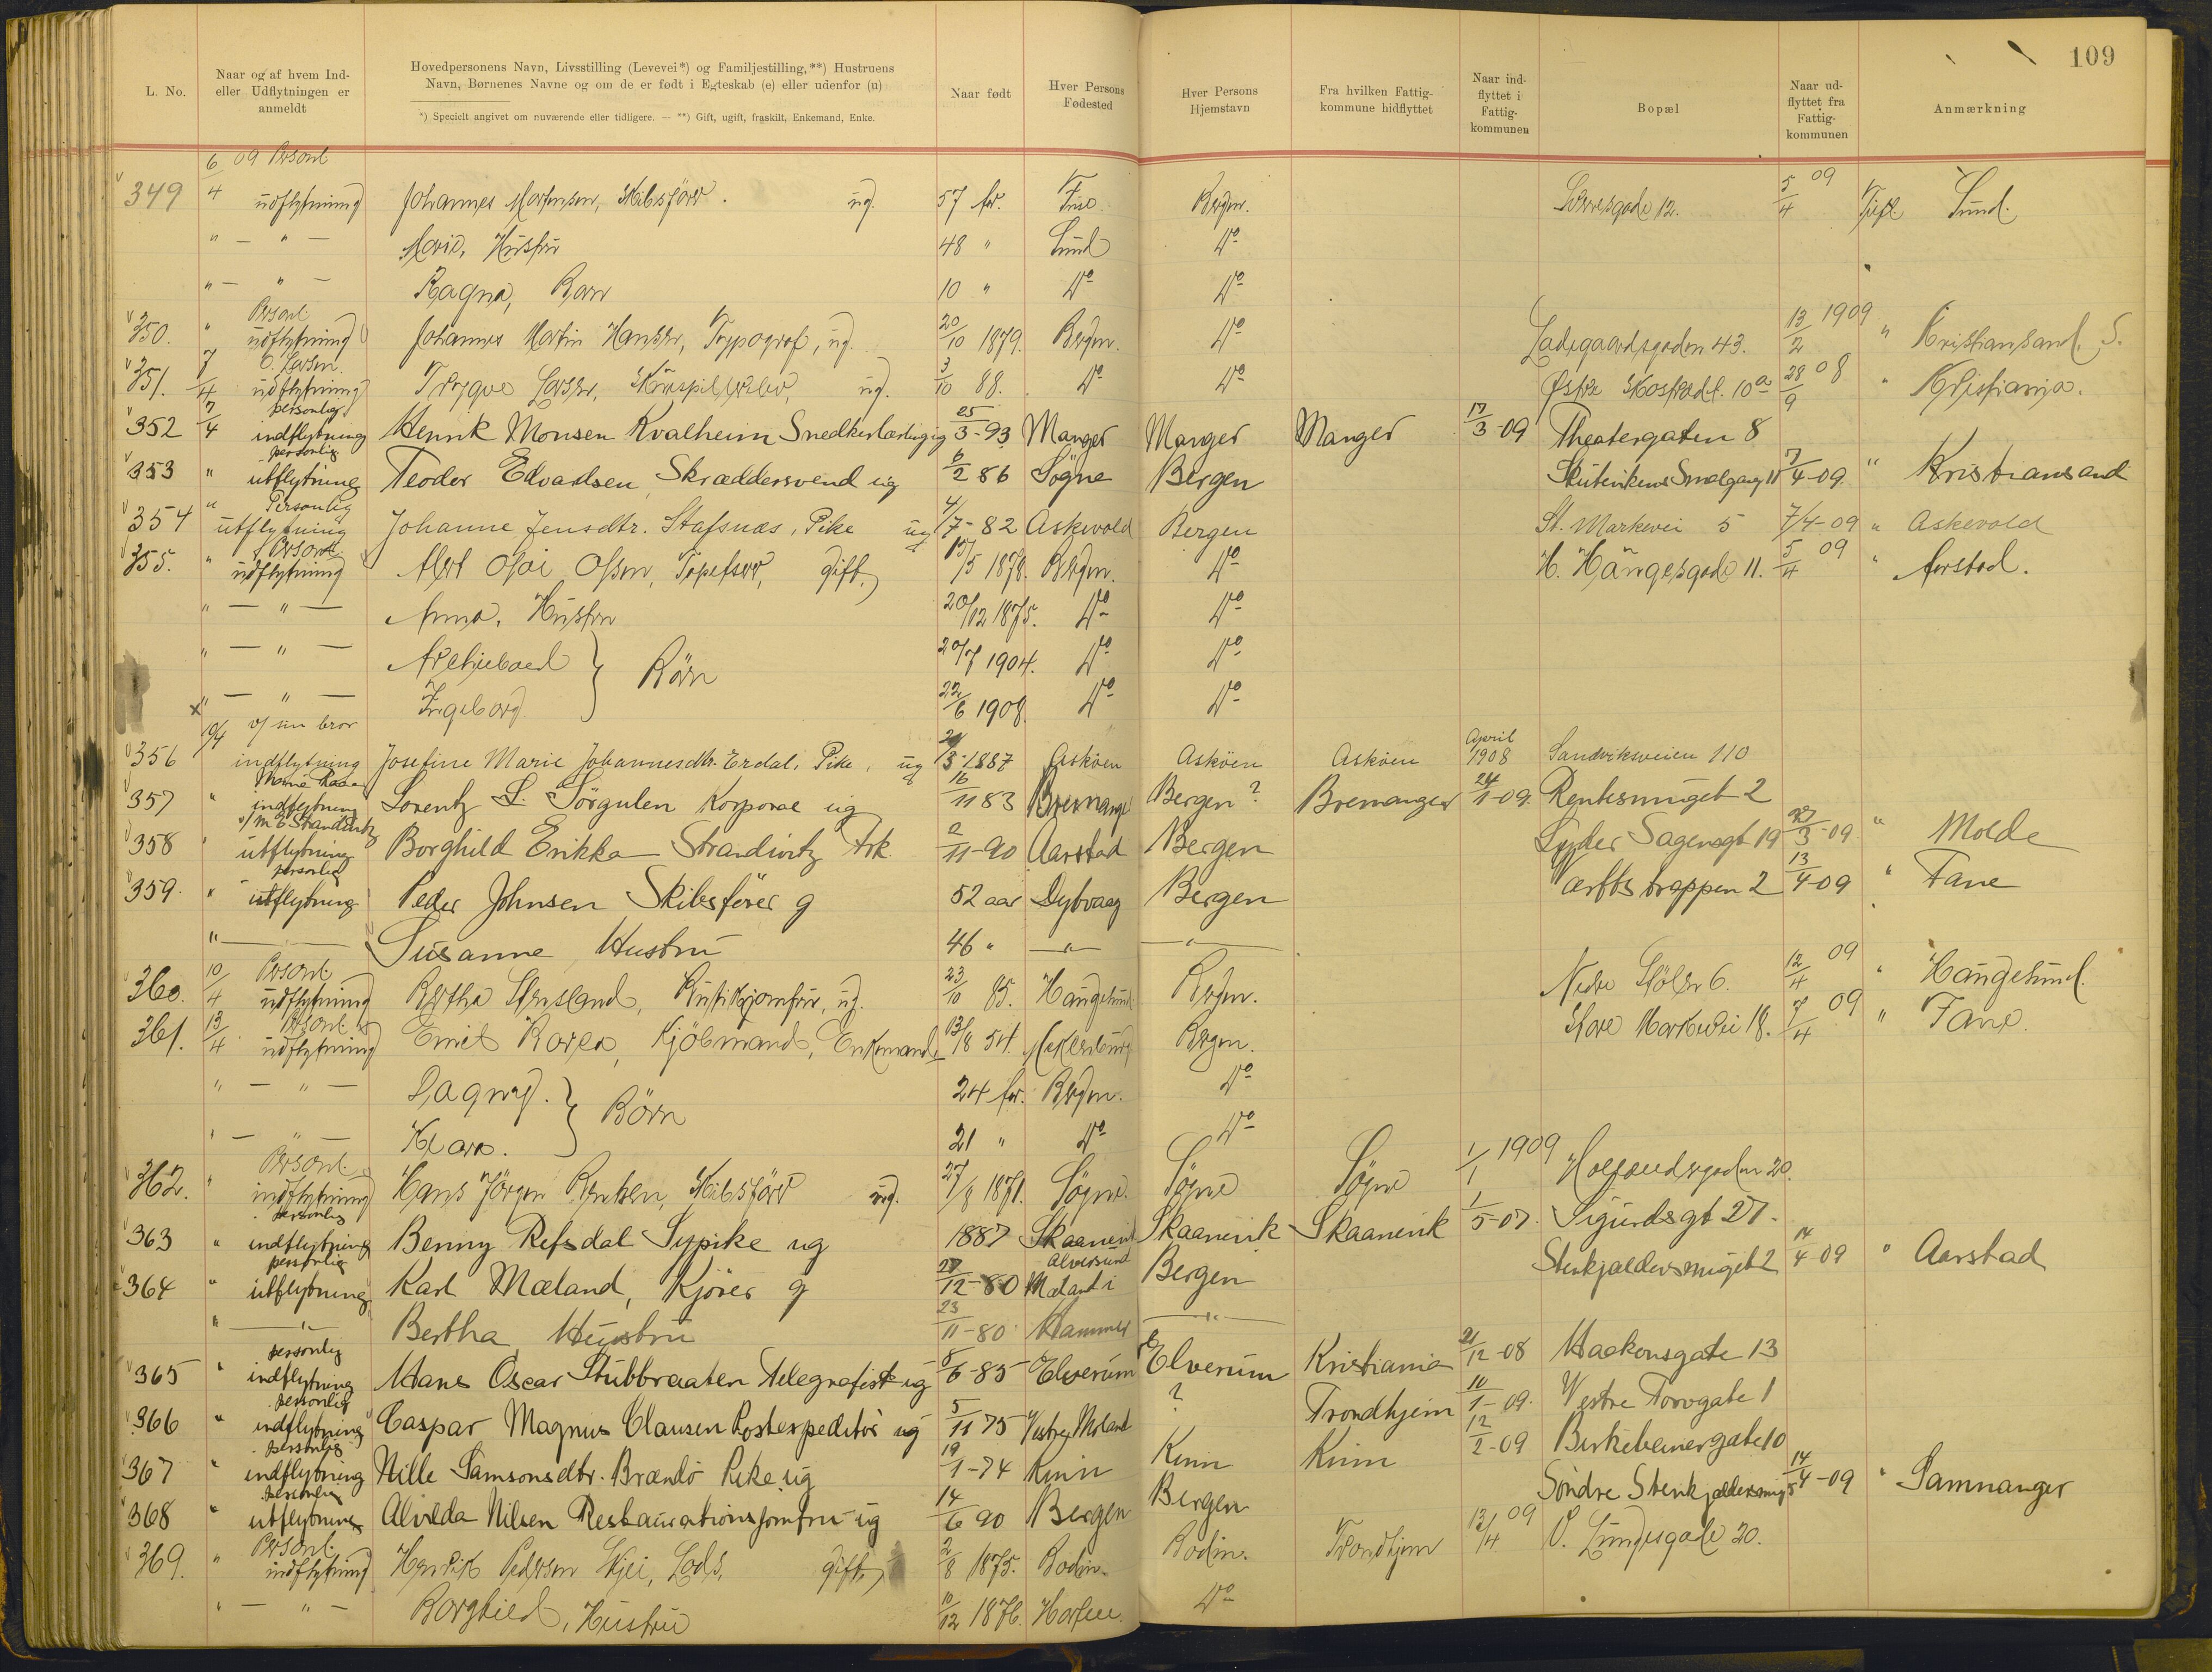 109
L. No.
Naar og af hvem Ind- eller Udflytningen er anmeldt
Hovedpersonens Navn, Livsstilling (Levevei*) og Familjestilling,**) Hustruens Navn, Børnenes Navne og om de er født i Egteskab (e) eller udenfor (u)
*) Specielt angivet om nuværende eller tidligere. — **) Gift, ugift, fraskilt, Enkemand, Enke.
Naar født
Hver Persons Fødested
Hver Persons Hjemstavn
Fra hvilken Fattigkommune hidflyttet
Naar indflyttet i Fattigkommunen
Bopæl
Naar udflyttet fra Fattigkommunen
Anmærkning
6/4 09 Personl.
349 udflytning Johannes Mortensen, Skibsfører. ug. 57 år. Bergen. 12. 5/4 09 Sund.
" — " — Marie, Hustru 48 " Sund Do
" — " — Ragna, Barn 10 " Do Do
350. " Personl. udflytning Johannes Martin Hansen, Typograf, ug. 20/10 1879. Bergen. Do Ladegaardsgaden 43. 13/2 1909 " Kristiansand S.
351. 7/4 C. Larsen. udflytning Trygve Larsen, ug. 3/10 88. Do Do Østre 10a 28/9 08 " Kristiania.
352 7/4 personlig indflytning Henrik Monsen Kvalheim Snedkerlærling ug 25/3-93 Manger Manger Manger 17/3-09 Theatergaten 8
353 " personlig utflytning Teodor Edvardsen, Skræddersvend ug 6/2 86 Søgne Bergen Smalgang 11 7/4-09 " Kristiansand
354 " Personlig utflytning Johanne Jensdtr. Stafsnæs, Pike ug 4/7-82 Askevold Bergen St. Markevei 5 7/4-09 " Askevold
355. " Personl. udflytning Olsen, gift, /5 1878. Bergen. Do H. Hougesgade 11. 5/4 09 " Aarstad.
" — " — Anna, Hustru 20/12 1875. Do Do
" — " — 20/7 1904. Do Do
Børn
" — " — Ingeborg 22/6 1908. Do Do
x 10/4 v/ sin bror
356 indflytning Josefine Marie Johannesdtr. Erdal, Pike, ug 3-1887 Askøen Askøen Askøen April 1908 Sandviksveien 110
357 " indflytning Lorentz L. Sørgulen Korporal ug 16/11 83 Bremanger Bergen? Bremanger 24/1-09. Rentesmuget 2
358 " utflytning Borghild Erikka 2/11-90 Aarstad Bergen Lyder Sagensgt 19 /3-09 " Molde
359. " personlig utflytning Peder Johnsen Skibsfører g 52 aar Dybvaag Bergen Værftstrappen 2 13/4-09 " Fane
" Susanne Hustru 46 " — " — — " —
360. 10/4 Personl. udflytning Bertha ug. 23/10 85. Haugesund Bergen. Nedre Støle 6. 12/4 09 " Haugesund.
361. 13/4 Personl. udflytning Emil Kjøbmand, Enkemand, 13/8 54. Bergen. Store Markevei 18. 7/4 09 " Fane.
" — " — Dagny. 24 år. Bergen. Do
Børn
" — " — Klara. 21 " Do Do
362. " Personl. indflytning Hans Jørgen Skibsfører ug. 27/8 1871. Søgne. Søgne Søgne 1/1 1909 20.
363 " personlig indflytning Benny Refsdal Sypike ug 1887 Skaanevik Skaanevik Skaanevik 1/5-07. Sigurdsgt 27.
364 " personlig utflytning Karl Mæland, Kjører g 27/12-80 Mæland i Alversund Bergen Stenkjældersmuget 2 14/4-09 " Aarstad
" — " — Bertha Hustru 23/11-80 Hammer — " —
365 " personlig indflytning Hans Oscar Stubbraaten Telegrafist ug 8/6-85 Elverum Elverum Kristiania 21/12-08 Haakonsgate 13
366 " personlig indflytning Caspar Magnus Clausen Postexpeditør ug 5/11 75 Vestre Moland ? Trondhjem 10/1-09. Vestre Torvgate 1
367 " personlig indflytning Nille Samsonsdtr. Brandø Pike ug 19/1-74 Kinn Kinn Kinn 12/2-09 Birkebeinergate 10
368 " personlig utflytning Alvilda Nilsen Restaurationsjomfru ug 14/6 90 Bergen Bergen Søndre Stenkjældersmug 5 14/4-09 " Samnanger
369. " Personl. indflytning Henrik Pedersen Lods, gift, 2/8 1875. Bodin. Bodin. Trondhjem 13/4 09 20.
" — " — Borghild, Hustru 10/12 1876. Do